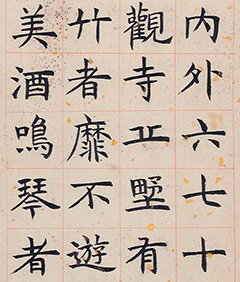 内外六七十
觀寺丘墅有
竹者靡不遊
美酒鳴琴者